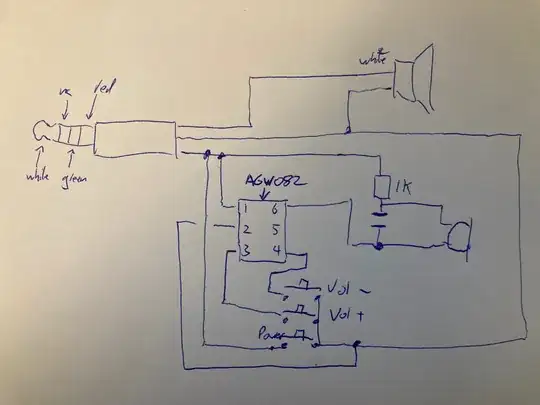 white
nc
red
white
green
AGW082
1 6
2 5
3 4
1K
Vol -
Vol +
Power